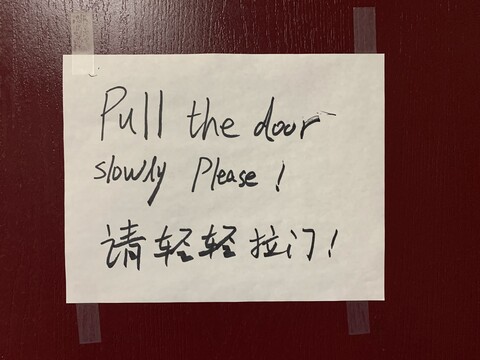 Pull the door
slowly Please!
请轻轻拉门!